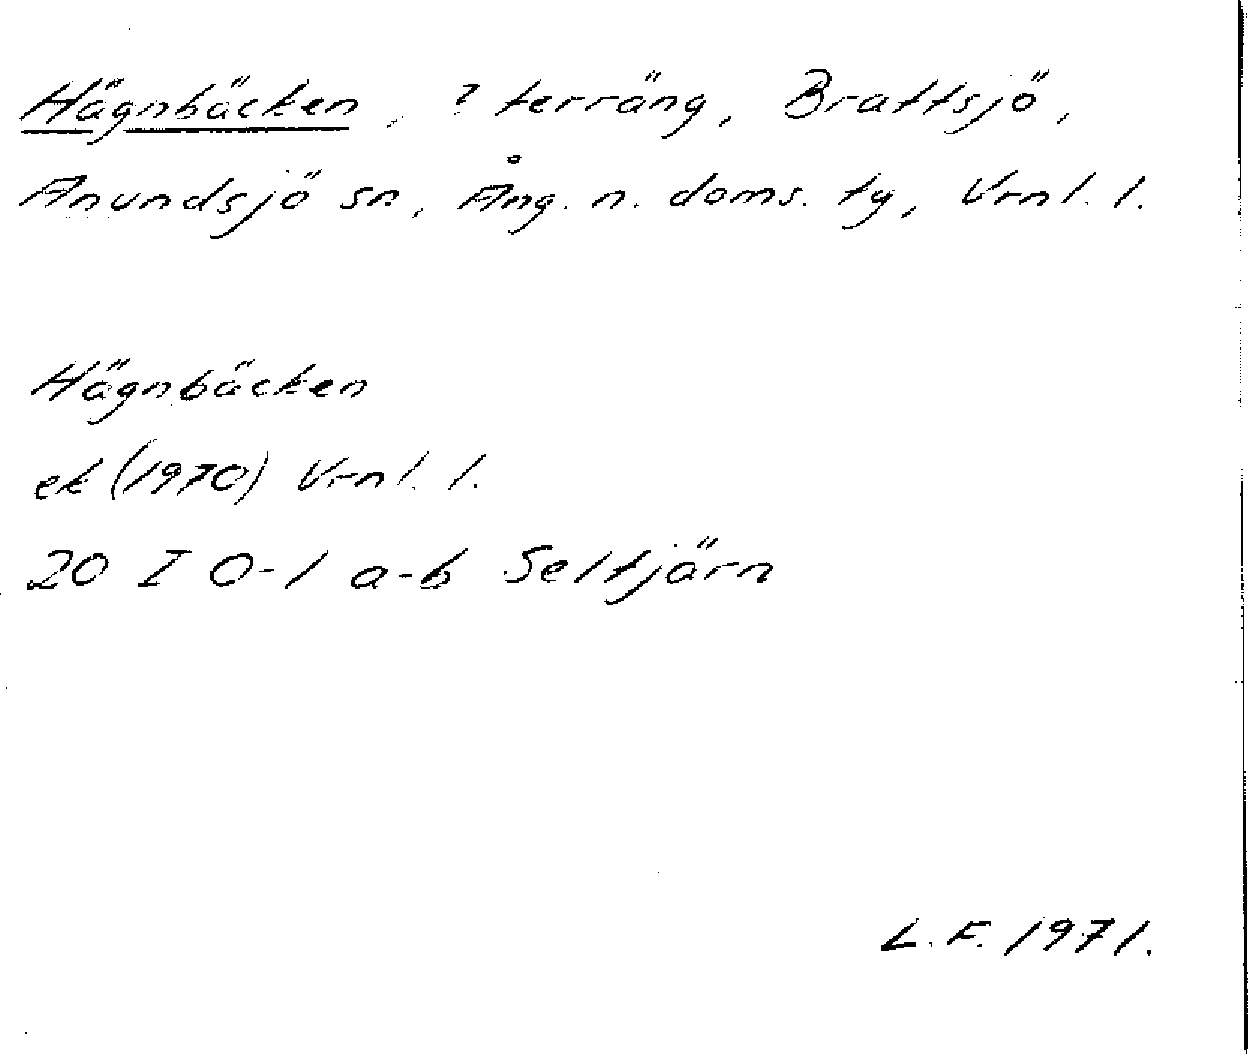 Hägnbäcken, ? terräng, Brattsjö,
Anundsjö sn, Ång. n. doms. ty, Vrnl. l.
Hägnbäcken
ek (1970) Vrnl. l.
20 I 0-1 a-b Seltjärn
L. F. 1971.